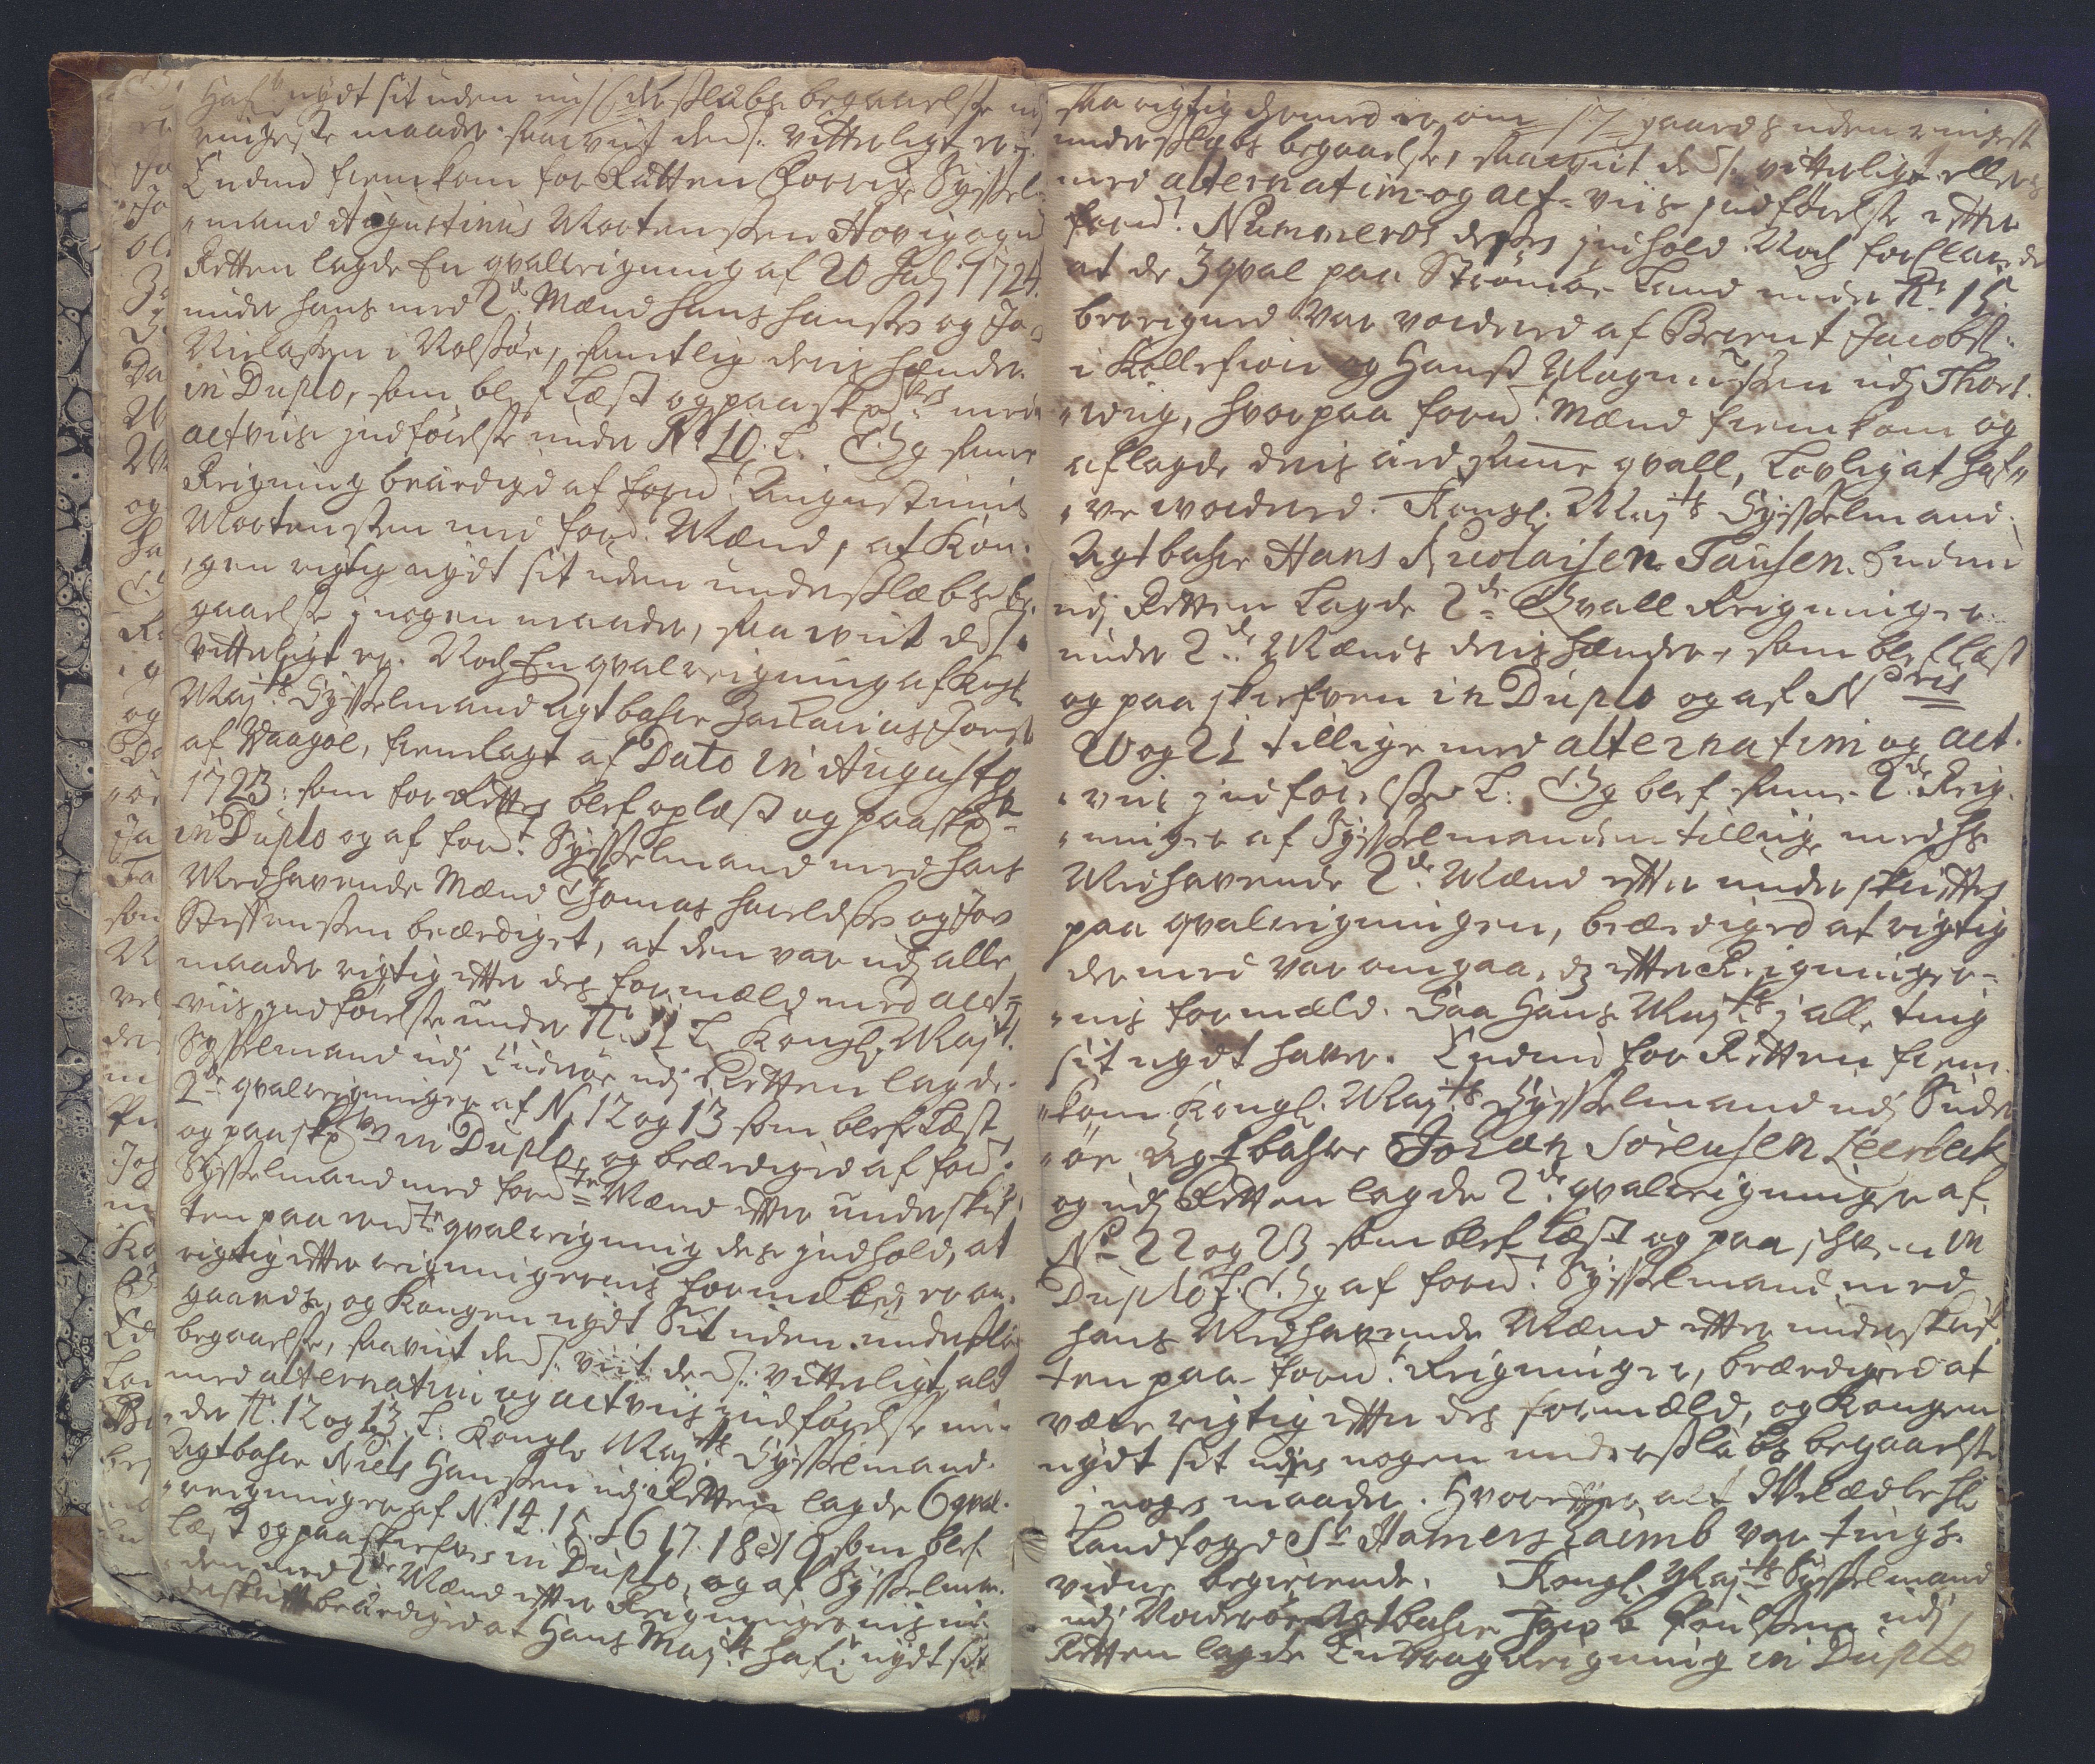 Hafr nydt sit uden underslæbs begaaelse udj
ringeste maader saaviit dend. vitterligt er.
Endnu fremkom for Retten forrige Syssel-
mand Augustinus Mortensen Hovig og udj
Retten lagde En qvalreigning af 20 Julj 1724
under hans med 2de Mænd hans hansen og Joen
Nielssen i Nolsöe, samtlig deris hænder
in Duplo, som blef læst og paaskrefvet med
actviis indförelse under No 10. L. Og samme
Reigning beædiged af ford: Augustinus
Mortensen med ford: Mænd, at Kon-
gen rigtig nydt sit uden underslæbs be-
gaaelse i nogen maader, saa wiit dend.
vitterligt er. Noch En qvalreigning af Kongl.
Mayts Sysselmand Agtbahre Zacharias
af Waagöe, fremlagt af Dato in Augusto
1723: som for Retten blef oplæst og paaskrefvet
in Duplo og af ford: Sysselmand med hans
Medhavende Mænd Thomas haraldsen og Joen
Steffensen beædiget, at den var udj alle
maader rigtig efter des formæld med act-
viis indförelse under No. 11 L. Kongl. Mayts
Sysselmand udj Suderöe udj Retten lagde
2de qvalreigninger af No 12 og 13 som blef Læst
og paaskrefven in Duplo, og beædiged af ford:
Sysselmand med fordte Mænd efter underskrif-
ten paa qvalreigning des indhold, at
rigtig efter reigningernis formæld er om-
gaaede, og Kongen nydt Sit uden underslæbs
begaaelse, saaviit dend. viit dend. vitterligt, alt
med alternatim og actviis indförelse un-
der No. 12 og 13 L. Kongl. Mayts Sysselmand
Agtbahre Niels Hansen udj Retten lagde 6 qval-
reigninger af No. 14. 15. 16 17. 18 og 19 som blef
læst og paaskrefven in Duplo, og af Sysselman-
den med 2de Mænd efter Reigningernis un-
derskrift beædiged at Hans Mayts hafr nydt sit
saa rigtig dermed er omgaaed uden ringeste
underslæbs begaaelse, saawiit dend. vitterligt alt
med alternatim og act-viis indförelse efter
ford: Nummeros deres indhold. Noch forklarede
at de 3 qval paa Strömöe Land under No 15
bereigned var vorderet af Berent Jacobs.
i Kollefiord og Hans Magnussen udj Thors-
wiig, hvorpaa ford: Mænd fremkom og
aflagde deris æd samme qvall, Lovlig at haf-
ve worderet. Kongl. Mayts Sysselmand
Agtbahre Hans Nicolaisen Tausen. Endnu
udj Retten Lagde 2de Qvall Reigninger
under 2de Mænds deris hænder, som blef Læst
og paaskrefven in Duplo og af Noris
20 og 21 tillige med alternatim og act-
viis indförelse L. Og blef samme 2de Reig-
ninger af Sysselmanden tillige med hs
Medhavende 2de Mænd efter underskriften
paa qvalreigningen, beædiged at rigtig
der med var omgaaed efter Reigninger-
nis formæld. Saa Hans Mayts i alle ting
sit nydt haver. Endnu for Retten frem-
kom Kongl. Mayts Sysselmand udj Suder
öe Agtbahre Johan Sörensen Leerbek
og udj Retten lagde 2de qvalreigninger af
No 22 og 23 som blef Læst og paaskrefven in
Duplo L. Og af ford: Sysselmand med
hans Medhavende Mænd efter underskrif-
ten paa ford: Reigninger, beædiged at
være rigtig efter des formæld, og Kongen
nydt sit uden nogen underslæbs begaaelse
i nogen maader. Hvorefter alt Welædle hr
Landfoged Sr Hamers Laimb var tings-
vidne begierende. Kongl. Mayts Sysselmand
udj Norderöe Agtbahre Jacob Poulsen udj
Retten lagde En Vragreigning in Duplo